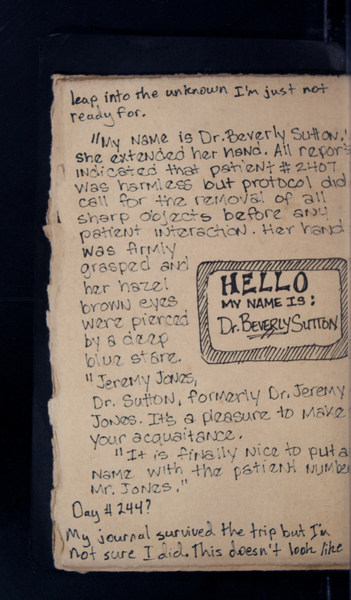 leap into the unknown I'm just not
ready for.
"My name is Dr. Beverly Sutton,"
she extended her hand. All reports
indicated that patient #2407
was harmless but protocol did
call for the removal of all
sharp objects before any
patient interaction. Her hand
was firmly
grasped and
her hazel
brown eyes
were pierced
by a deep
blue stare.
HELLO
MY NAME IS:
Dr. BEVERLY SUTTON
"Jeremy Jones,
Dr. Sutton, formerly Dr. Jeremy
Jones. It's a pleasure to make
your acquaitance.
"It is finally nice to put a
name with the patient number
Mr. Jones."
Day # 244?
My journal survived the trip but I'm
not sure I did. This doesn't look like